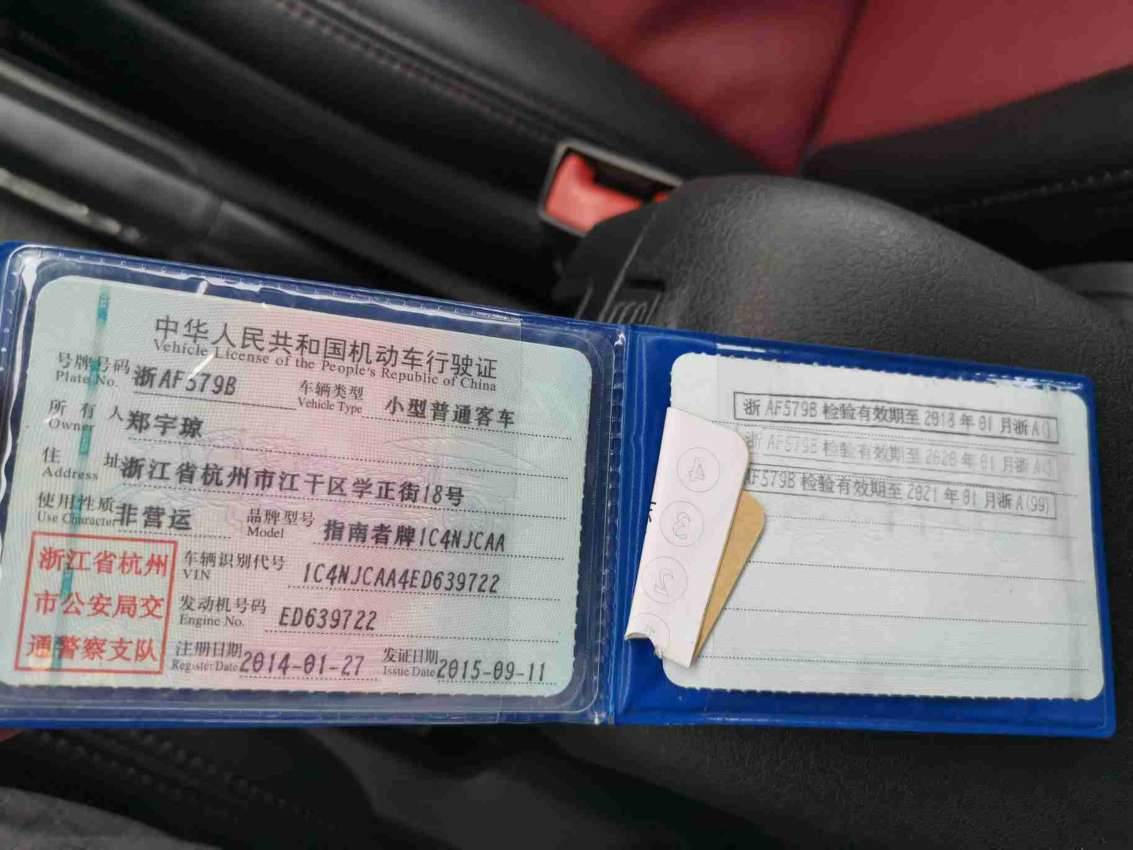 中华人民共和国机动车行驶证
Vehicle License of the People's Republic of China
号牌号码 浙AF579B 车辆类型 小型普通客车
Plate No. Vehicle Type
所有人 郑宇琼
Owner
住址 浙江省杭州市江干区学正街18号
Address
使用性质 非营运 品牌型号 指南者牌1C4NJCAA
Use Character Model
浙江省杭州
市公安局交
通警察支队
车辆识别代号 1C4NJCAA4ED639722
VIN
发动机号码 ED639722
Engine No.
注册日期 2014-01-27 发证日期 2015-09-11
Register Date Issue Date
浙AF579B检验有效期至2018年01月浙A()
浙AF579B检验有效期至2020年01月浙A()
F579B检验有效期至2021年01月浙A(99)
4
3
2